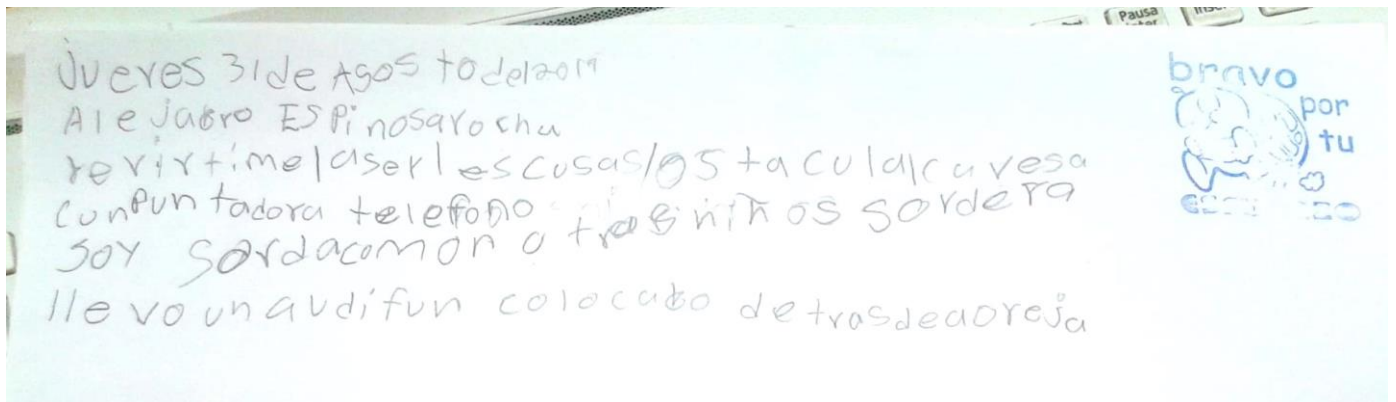 Pausa
Jueves 31 de Agos to del 2017
Ale jabro ESPinosarocha
revirtimelaserl escusaslos ta culalcavesa
Conpuntadora telefono
otros niños sordera
Soy Sordacomon
lle vo un audifun colocabo detrasdeaoreja
bravo
por
tu